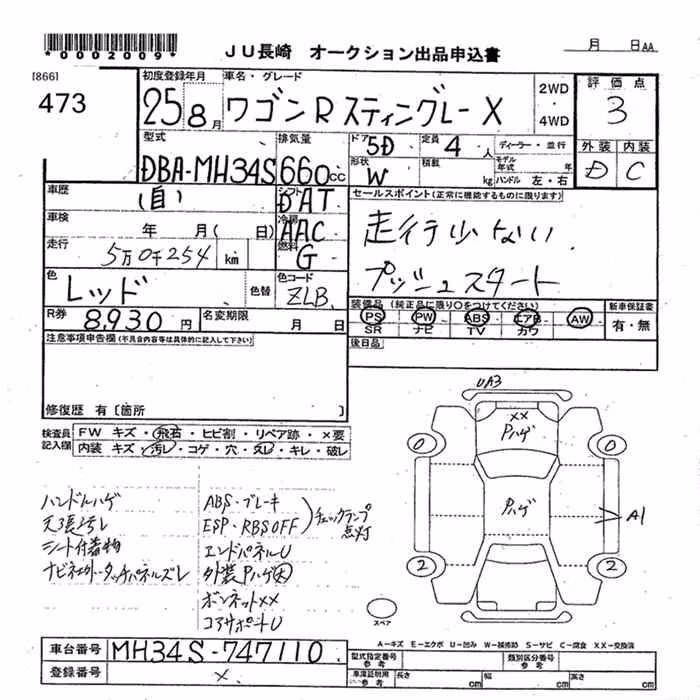 *0002009*
JU長崎 オークション出品申込書
月 日AA
[866]
473
初度登録年月 車名・グレード
25 8月 ワゴンR スティングレーX
2WD・4WD
評価点
3
外装 内装
D C
型式 排気量
DBA-MH34S 660cc
ドア 5D 定員 4人
ディーラー・並行
形状 W 積載 kg
モデル年式 年
ハンドル 左・右
車歴 (自)
シフト DAT
車検 年 月( 日)
冷房 AAC
走行 5万0千254 km
燃料 G
セールスポイント(正常に機能するものに限ります)
走行少ない
プッシュスタート
色 レッド 色替
色コード ZLB
R券 8,930円 名変期限 月 日
装備品 (純正品に限り○をつけてください)
PS PW ABS エアB AW
SR ナビ TV カワ
新車保証書
有・無
後日品
注意事項申告欄(不具合内容等は具体的に記入して下さい)
修復歴 有〔箇所 〕
検査員記入欄
FW キズ・飛石・ヒビ割・リペア跡・×要
内装 キズ・汚レ・コゲ・穴・スレ・キレ・破レ
ハンドルハゲ
天張汚レ
シート付着物
ABS・ブレーキ
ESP・RBSOFF
チェックランプ点灯
エンドパネルU
外装Pハゲ大
ボンネット××
コアサポートU
UA3
××
Pハゲ
Pハゲ
0 0
A1
2 2
スペア
A-キズ E-エクボ U-凹み W-補修跡 S-サビ C-腐食 XX-交換済
車台番号 MH34S-747110
登録番号 ×
型式指定番号 参考 類別区分番号 参考
車庫証明用 参考 長さ cm 幅 cm 高さ cm